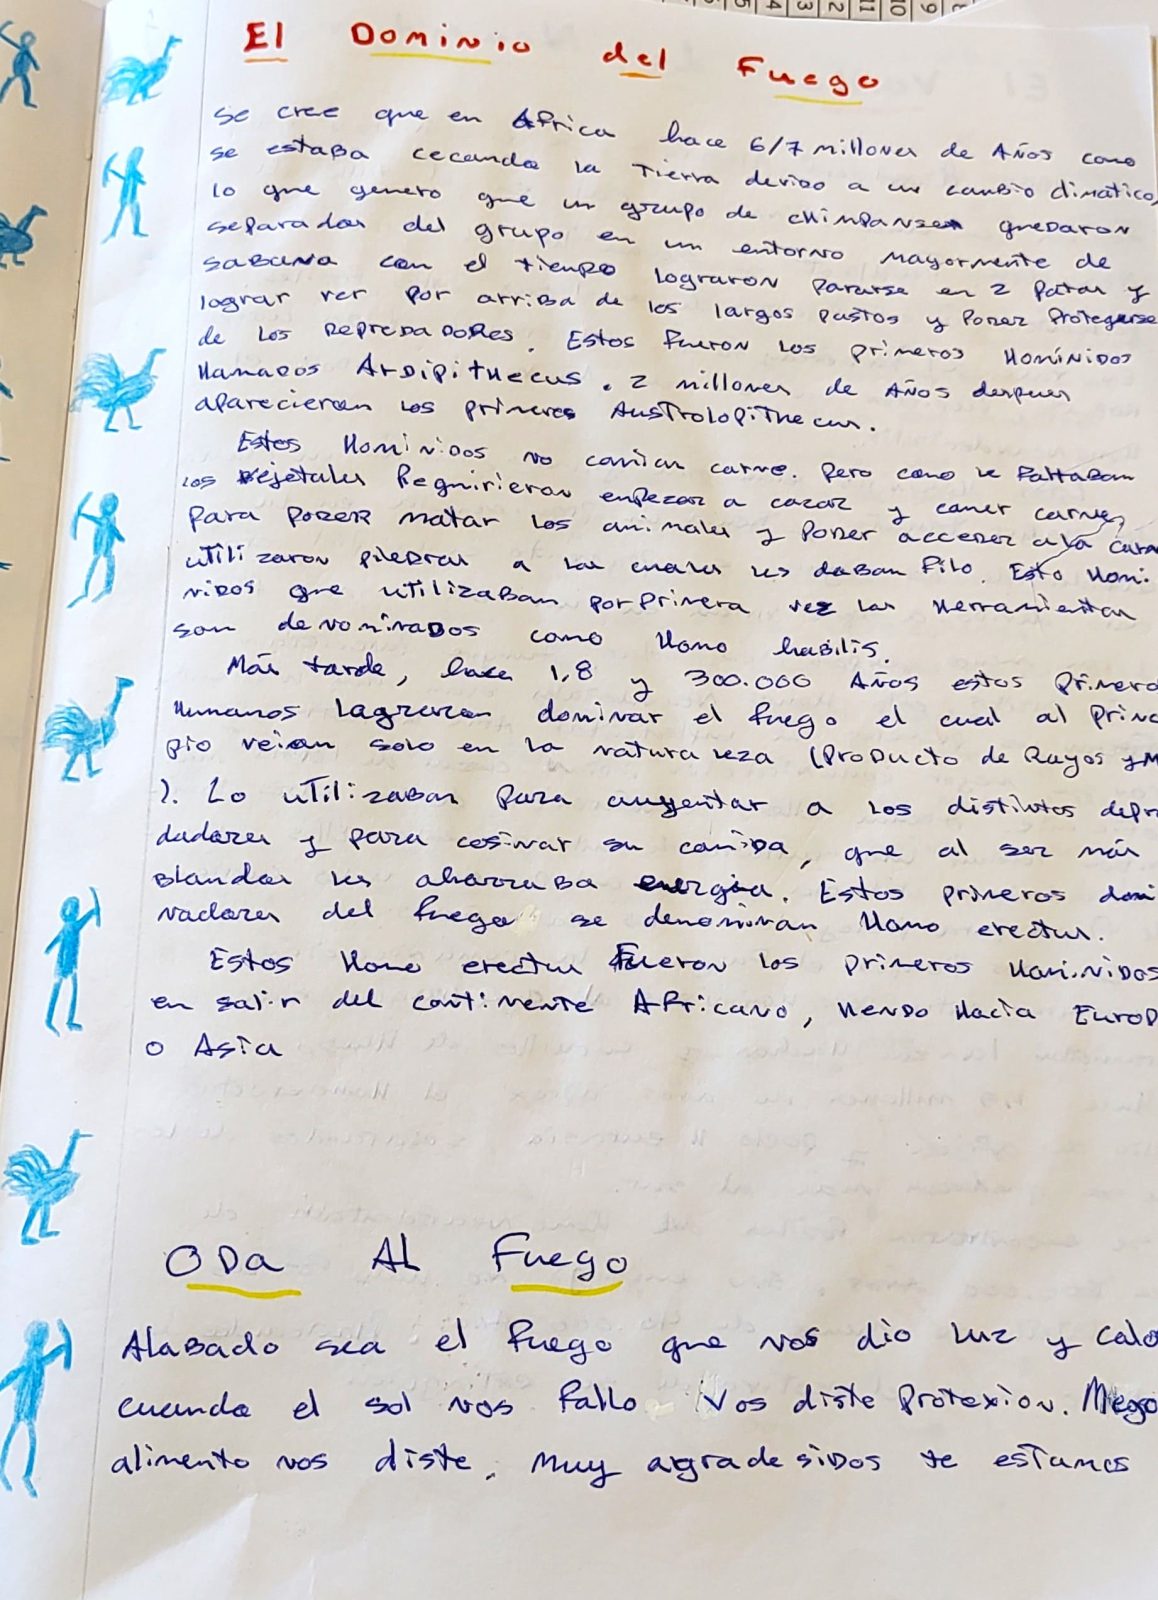 El Dominio del Fuego
Se cree que en Africa hace 6/7 millones de Años como
se estaba cecando la Tierra devido a un cambio climático,
lo que genero que un grupo de chimpanses quedaron
separados del grupo en un entorno mayormente de
sabana con el tiempo lograron pararse en 2 patas y
lograr ver por arriba de los largos pastos y poder protegerse
de los depredadores. Estos fueron los primeros Homínidos
llamados Ardipithecus. 2 millones de Años despues
aparecieron los primeros Austrolopithecus.
Estos Hominidos no comian carne. Pero como le faltaban
los vejetales Requirieron empezar a cazar y comer carne,
para poder matar los animales y poder acceder a la carne
utilizaron piedras a las cuales les daban filo. Esto Homi-
nidos que utilizaban por primera vez las Herramientas
son denominados como Homo habilis.
Más tarde, hace 1,8 y 300.000 Años estos primero
Humanos lograron dominar el fuego el cual al princ
pio veian solo en la naturaleza (Producto de Rayos y M
). Lo utilizaban para auyentar a los distintos depre
dadores y para cosinar su comida, que al ser más
blandas les ahorraba energia. Estos primeros domi
nadores del fuego se denominan Homo erectus.
Estos Homo erectus Fueron los primeros Hominidos
en salir del continente Africano, llendo Hacia Europ
o Asia
ODa AL Fuego
Alabado sea el fuego que nos dio luz y calo
cuando el sol nos fallo Vos diste protexion. Mego
alimento nos diste, muy agradesidos te estamos
9
10
11
2
3
4
5